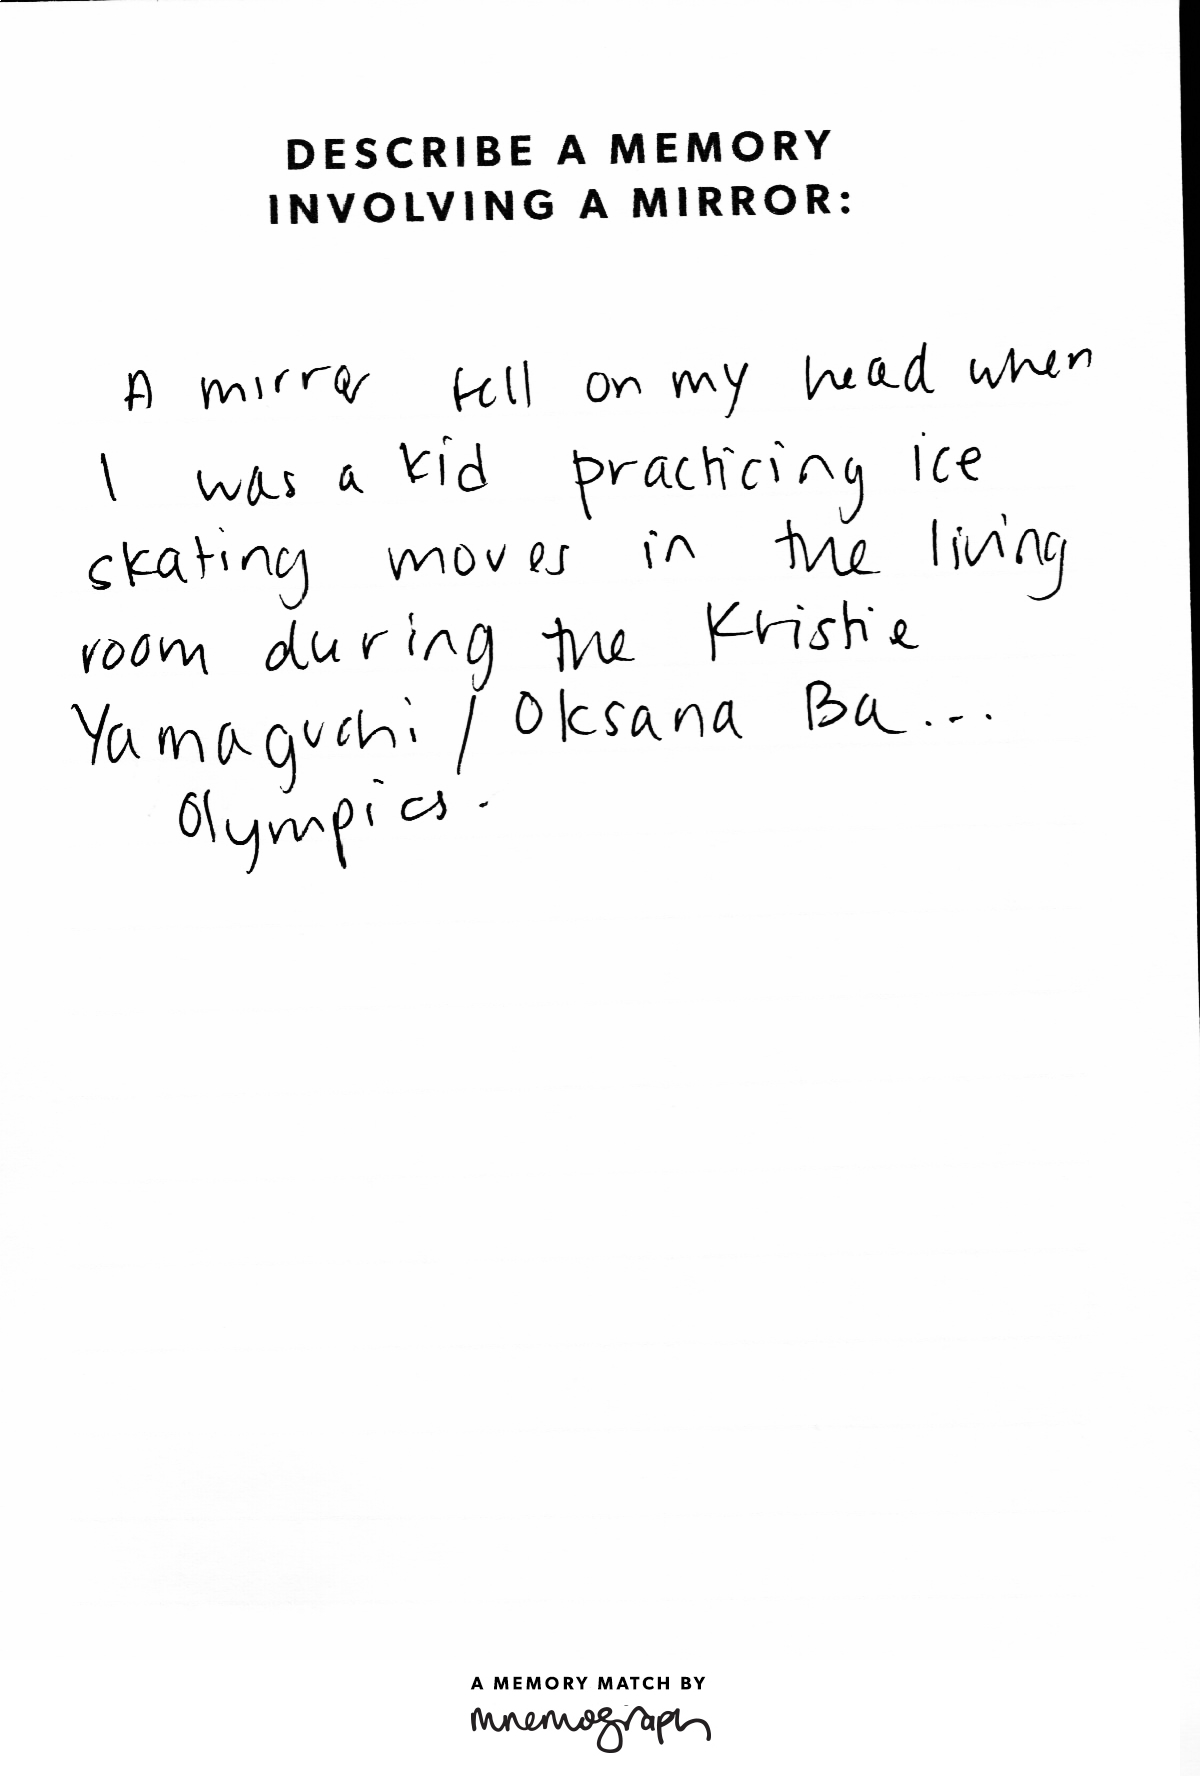 DESCRIBE A MEMORY
INVOLVING A MIRROR:
A mirror fell on my head when
I was a kid practicing ice
skating moves in the living
room during the Kristie
Yamaguchi / Oksana Ba...
Olympics.
A MEMORY MATCH BY
mnemograph